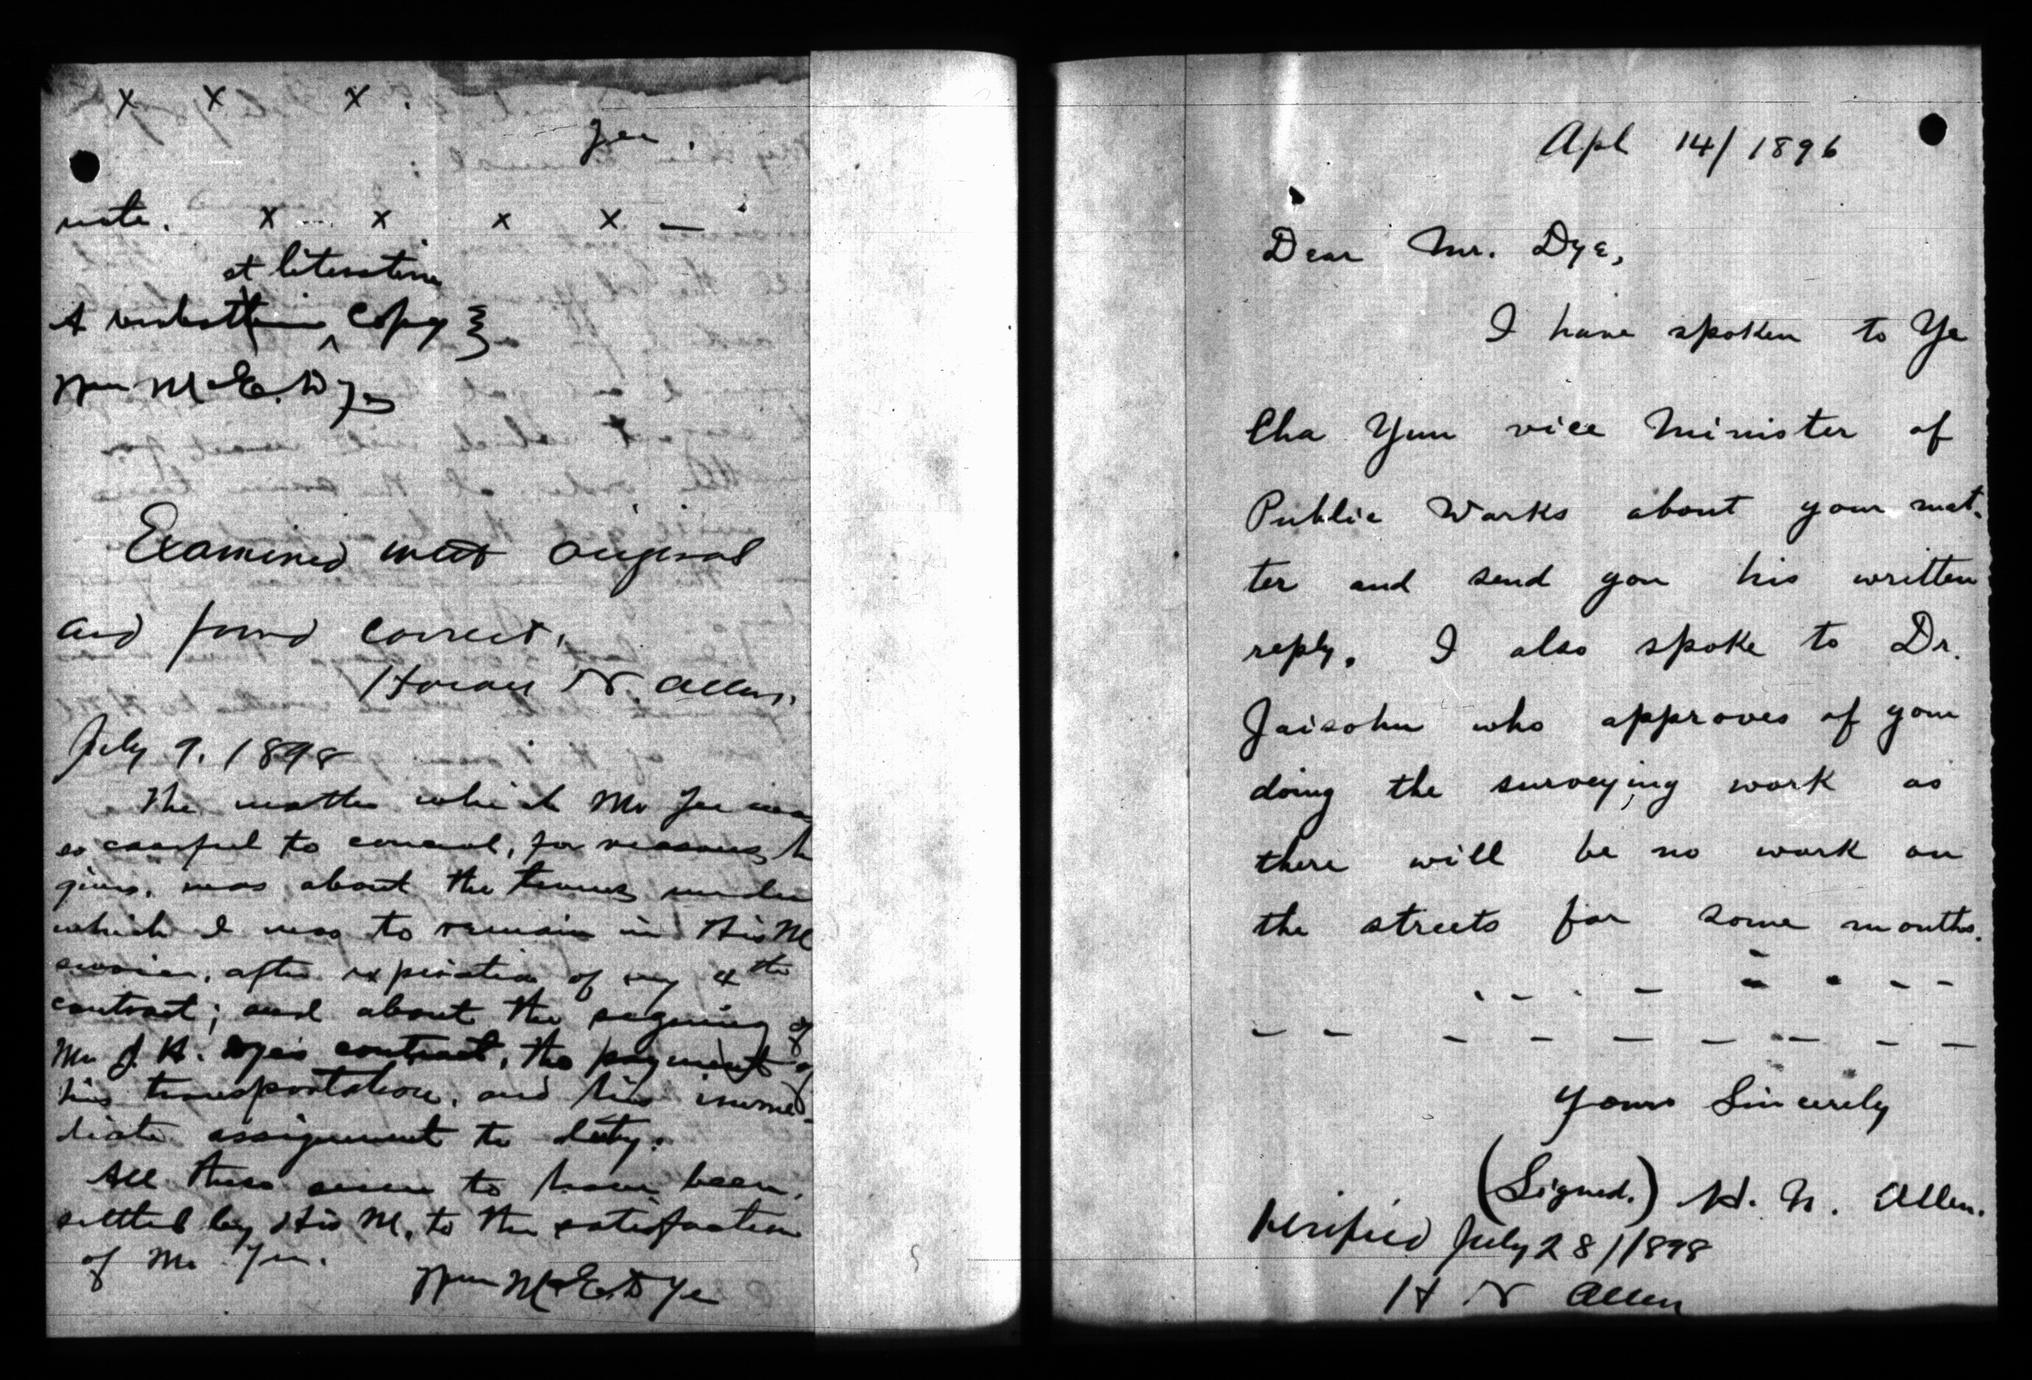 x x x .
Yee.
note. x x x x —
et literatim
A verbatim ^ Copy }
Wm McE. Dye
Examined with original
and found correct.
Horace N. Allen.
July 9. 1898
The matter which Mr Yee was
so careful to conceal, for reasons he
gives, was about the terms under
which I was to remain in His M
service, after expiration of my 4th
contract; and about the signing of
Mr J. H. Dye's contract, the payment of
his transportation, and his imme-
diate assignment to duty.
All these seem to have been,
settled by His M. to the satisfaction
of Mr Yee.
Wm McE. Dye
Apl 14/1896
Dear Mr. Dye,
I have spoken to Ye
Cha Yun vice Minister of
Public Works about your mat-
ter and send you his written
reply. I also spoke to Dr.
Jaisohn who approves of your
doing the surveying work as
there will be no work on
the streets for some months.
- - - - - - - -
- - - - - - - - -
Yours Sincerely
(Signed.) H. N. Allen.
Verified July 28/1898
H N Allen